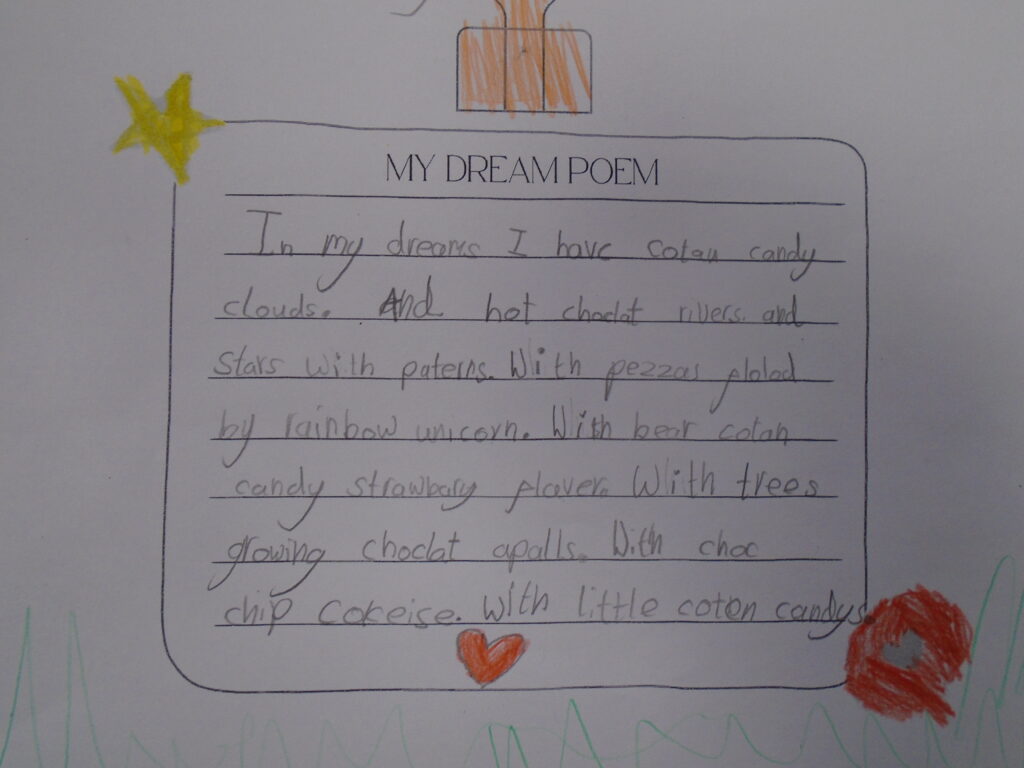 MY DREAM POEM
In my dreams I have cotan candy
clouds. And hot choclat rivers. and
stars with paterns. With pezzas flolod
by rainbow unicorn. With bear cotan
candy strawbary flaver. With trees
growing choclat apalls. With choc
chip cokeise. With little coton candys.